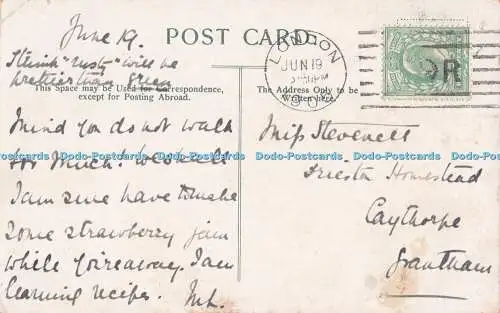 June 19.
POST CARD.
I think "rusty" will be
prettier than green
This Space may be Used for Correspondence,
except for Posting Abroad.
The Address Only to be
Written here.
LONDON
JUN 19
Mind you do not walk
too much.
I am sure have to make
some strawberry jam
while you're away. I am
learning recipes.
Miss Stevenell
Homestead
Caythorpe
Grantham
Dodo-Postcards Dodo-Postcards Dodo-Postcards Dodo-Postcards Dodo-Postcards Dodo-Postcards